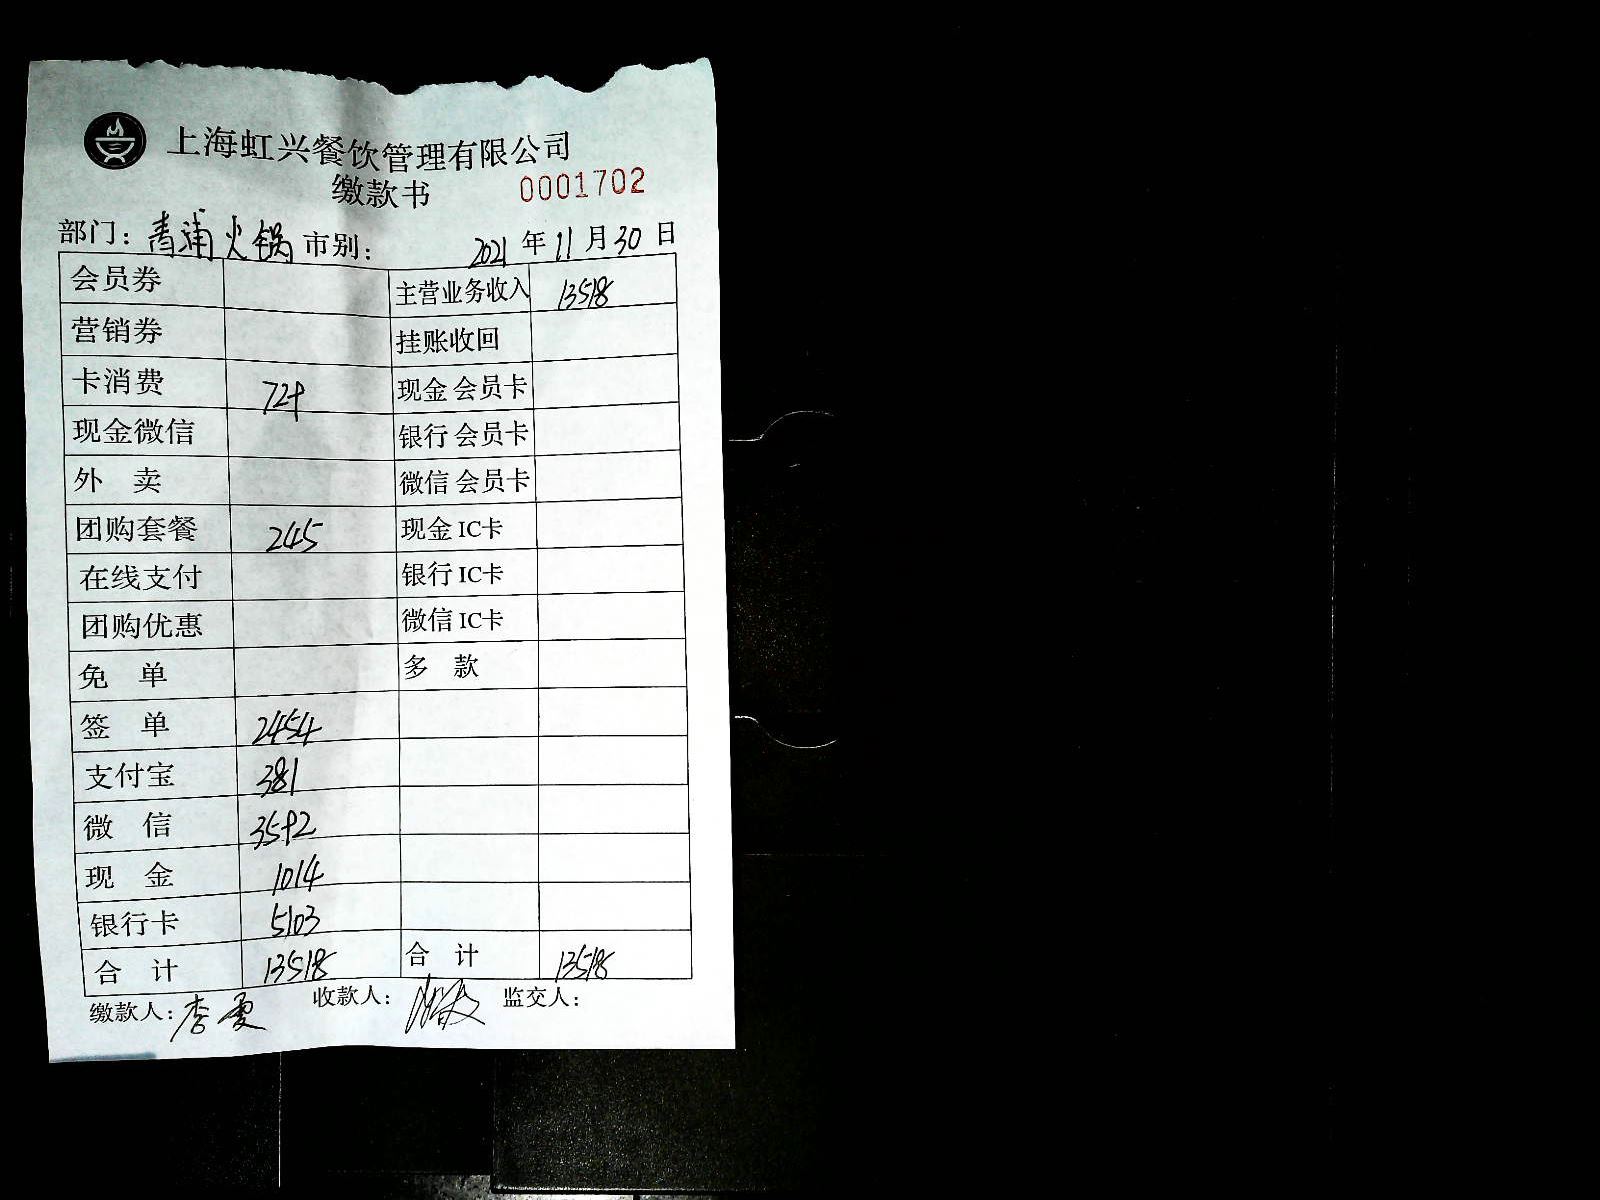 上海虹兴餐饮管理有限公司
缴款书 0001702
部门：青浦火锅 市别： 2021 年 11 月 30 日
会员券 主营业务收入 13518
营销券 挂账收回
卡消费 729 现金 会员卡
现金微信 银行 会员卡
外 卖 微信 会员卡
团购套餐 245 现金 IC卡
在线支付 银行 IC卡
团购优惠 微信 IC卡
免 单 多 款
签 单 2454
支付宝 381
微 信 3592
现 金 1014
银行卡 5103
合 计 13518 合 计 13518
缴款人：李 收款人： 监交人：